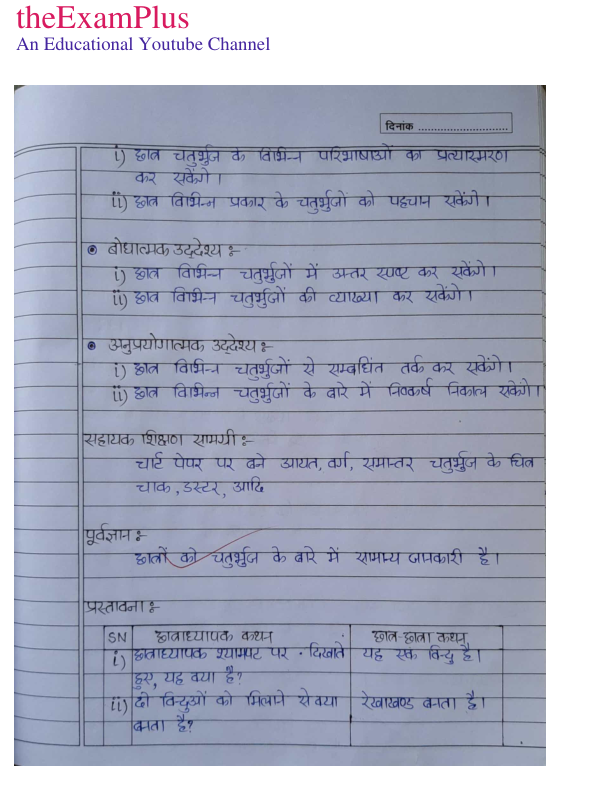 theExamPlus
An Educational Youtube Channel
दिनांक ..............................
i) छात्र चतुर्भुज के विभिन्न परिभाषाओं का प्रत्यास्मरण
कर सकेंगे।
ii) छात्र विभिन्न प्रकार के चतुर्भुजों को पहचान सकेंगे।
बोधात्मक उद्देश्य :-
i) छात्र विभिन्न चतुर्भुजों में अन्तर स्पष्ट कर सकेंगे।
ii) छात्र विभिन्न चतुर्भुजों की व्याख्या कर सकेंगे।
अनुप्रयोगात्मक उद्देश्य :-
i) छात्र विभिन्न चतुर्भुजों से सम्बधिंत तर्क कर सकेंगे।
ii) छात्र विभिन्न चतुर्भुजों के बारे में निष्कर्ष निकाल सकेंगे।
सहायक शिक्षण सामग्री :-
चार्ट पेपर पर बने आयत, वर्ग, समान्तर चतुर्भुज के चित्र
चाक, डस्टर, आदि
पूर्वज्ञान :-
छात्रों को चतुर्भुज के बारे में सामान्य जानकारी है।
प्रस्तावना :-
SN छात्राध्यापक कथन छात्र-छात्रा कथन
i) छात्राध्यापक श्यामपट पर • दिखाते यह एक बिन्दु है।
हुए, यह क्या है?
ii) दो बिन्दुओं को मिलाने से क्या रेखाखण्ड बनता है।
बनता है?